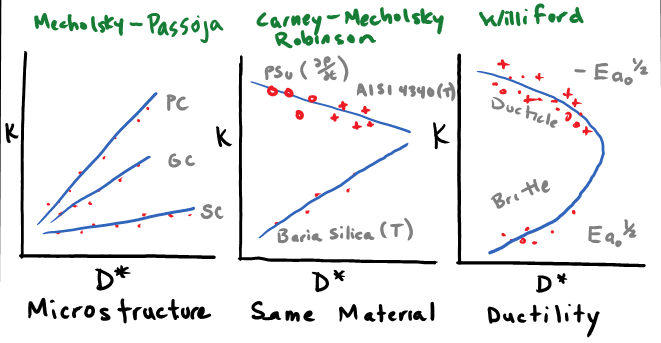 Mecholsky-Passoja
K
PC
GC
SC
D*
Microstructure
Carney-Mecholsky
Robinson
K
PSU (∂ρ/∂t)
AISI 4340(T)
Baria Silica (T)
D*
Same Material
Williford
K
-Ea₀^1/2
Ducticle
Brittle
Ea₀^1/2
D*
Ductility